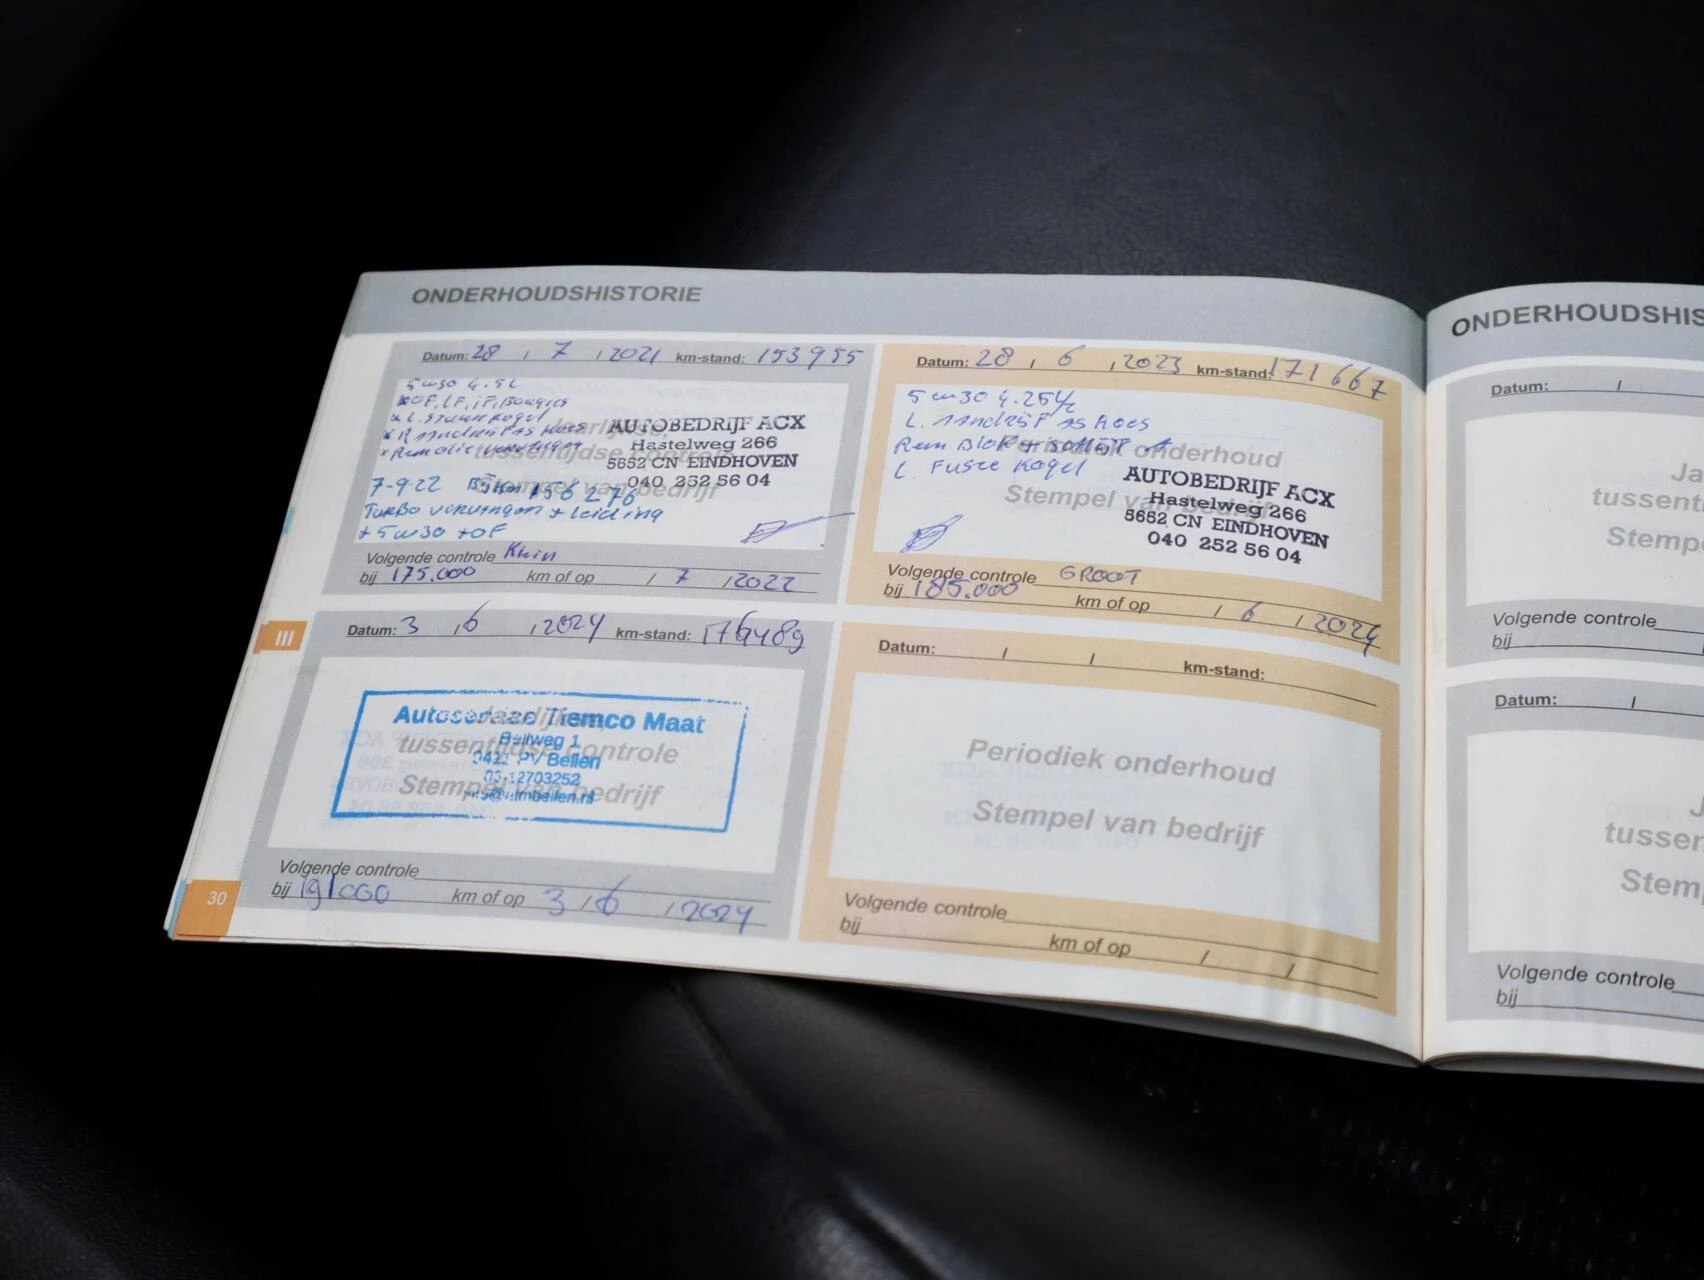 ONDERHOUDSHISTORIE
Datum: 28 / 7 / 2021 km-stand: 153955
5w30 4.5L
x OF, LF, iF, Bougies
x L. stuurkogel
x R Aandrijf as Hoes
x Remolie vervangen
Jaarlijkse,
tussentijdse controle
Stempel van bedrijf
AUTOBEDRIJF ACX
Hastelweg 266
5652 CN EINDHOVEN
040 252 56 04
7-9-22 Bij km 156 276
Turbo vervangen + leiding
+ 5w30 + OF
Volgende controle Klein
bij 175.000 km of op / 7 / 2022
Datum: 28 / 6 / 2023 km-stand: 171667
5w30 4.25L
L. Aandrijf as Hoes
Rem Blok + schijf A
L. Fusee Kogel
Periodiek onderhoud
Stempel van bedrijf
AUTOBEDRIJF ACX
Hastelweg 266
5652 CN EINDHOVEN
040 252 56 04
Volgende controle GROOT
bij 185.000 km of op / 6 / 2024
III
Datum: 3 / 6 / 2024 km-stand: 176489
Tiemco Maat
Beilweg 1
PV Beilen
tussentijdse controle
Stempel van bedrijf
Volgende controle
bij 191000 km of op 3 / 6 / 2024
Datum: / / km-stand:
Periodiek onderhoud
Stempel van bedrijf
Volgende controle
bij km of op / /
30
ONDERHOUDSHIS
Datum: /
Ja
tussent
Stempe
Volgende controle
bij
Datum: /
J
tussen
Stem
Volgende controle
bij